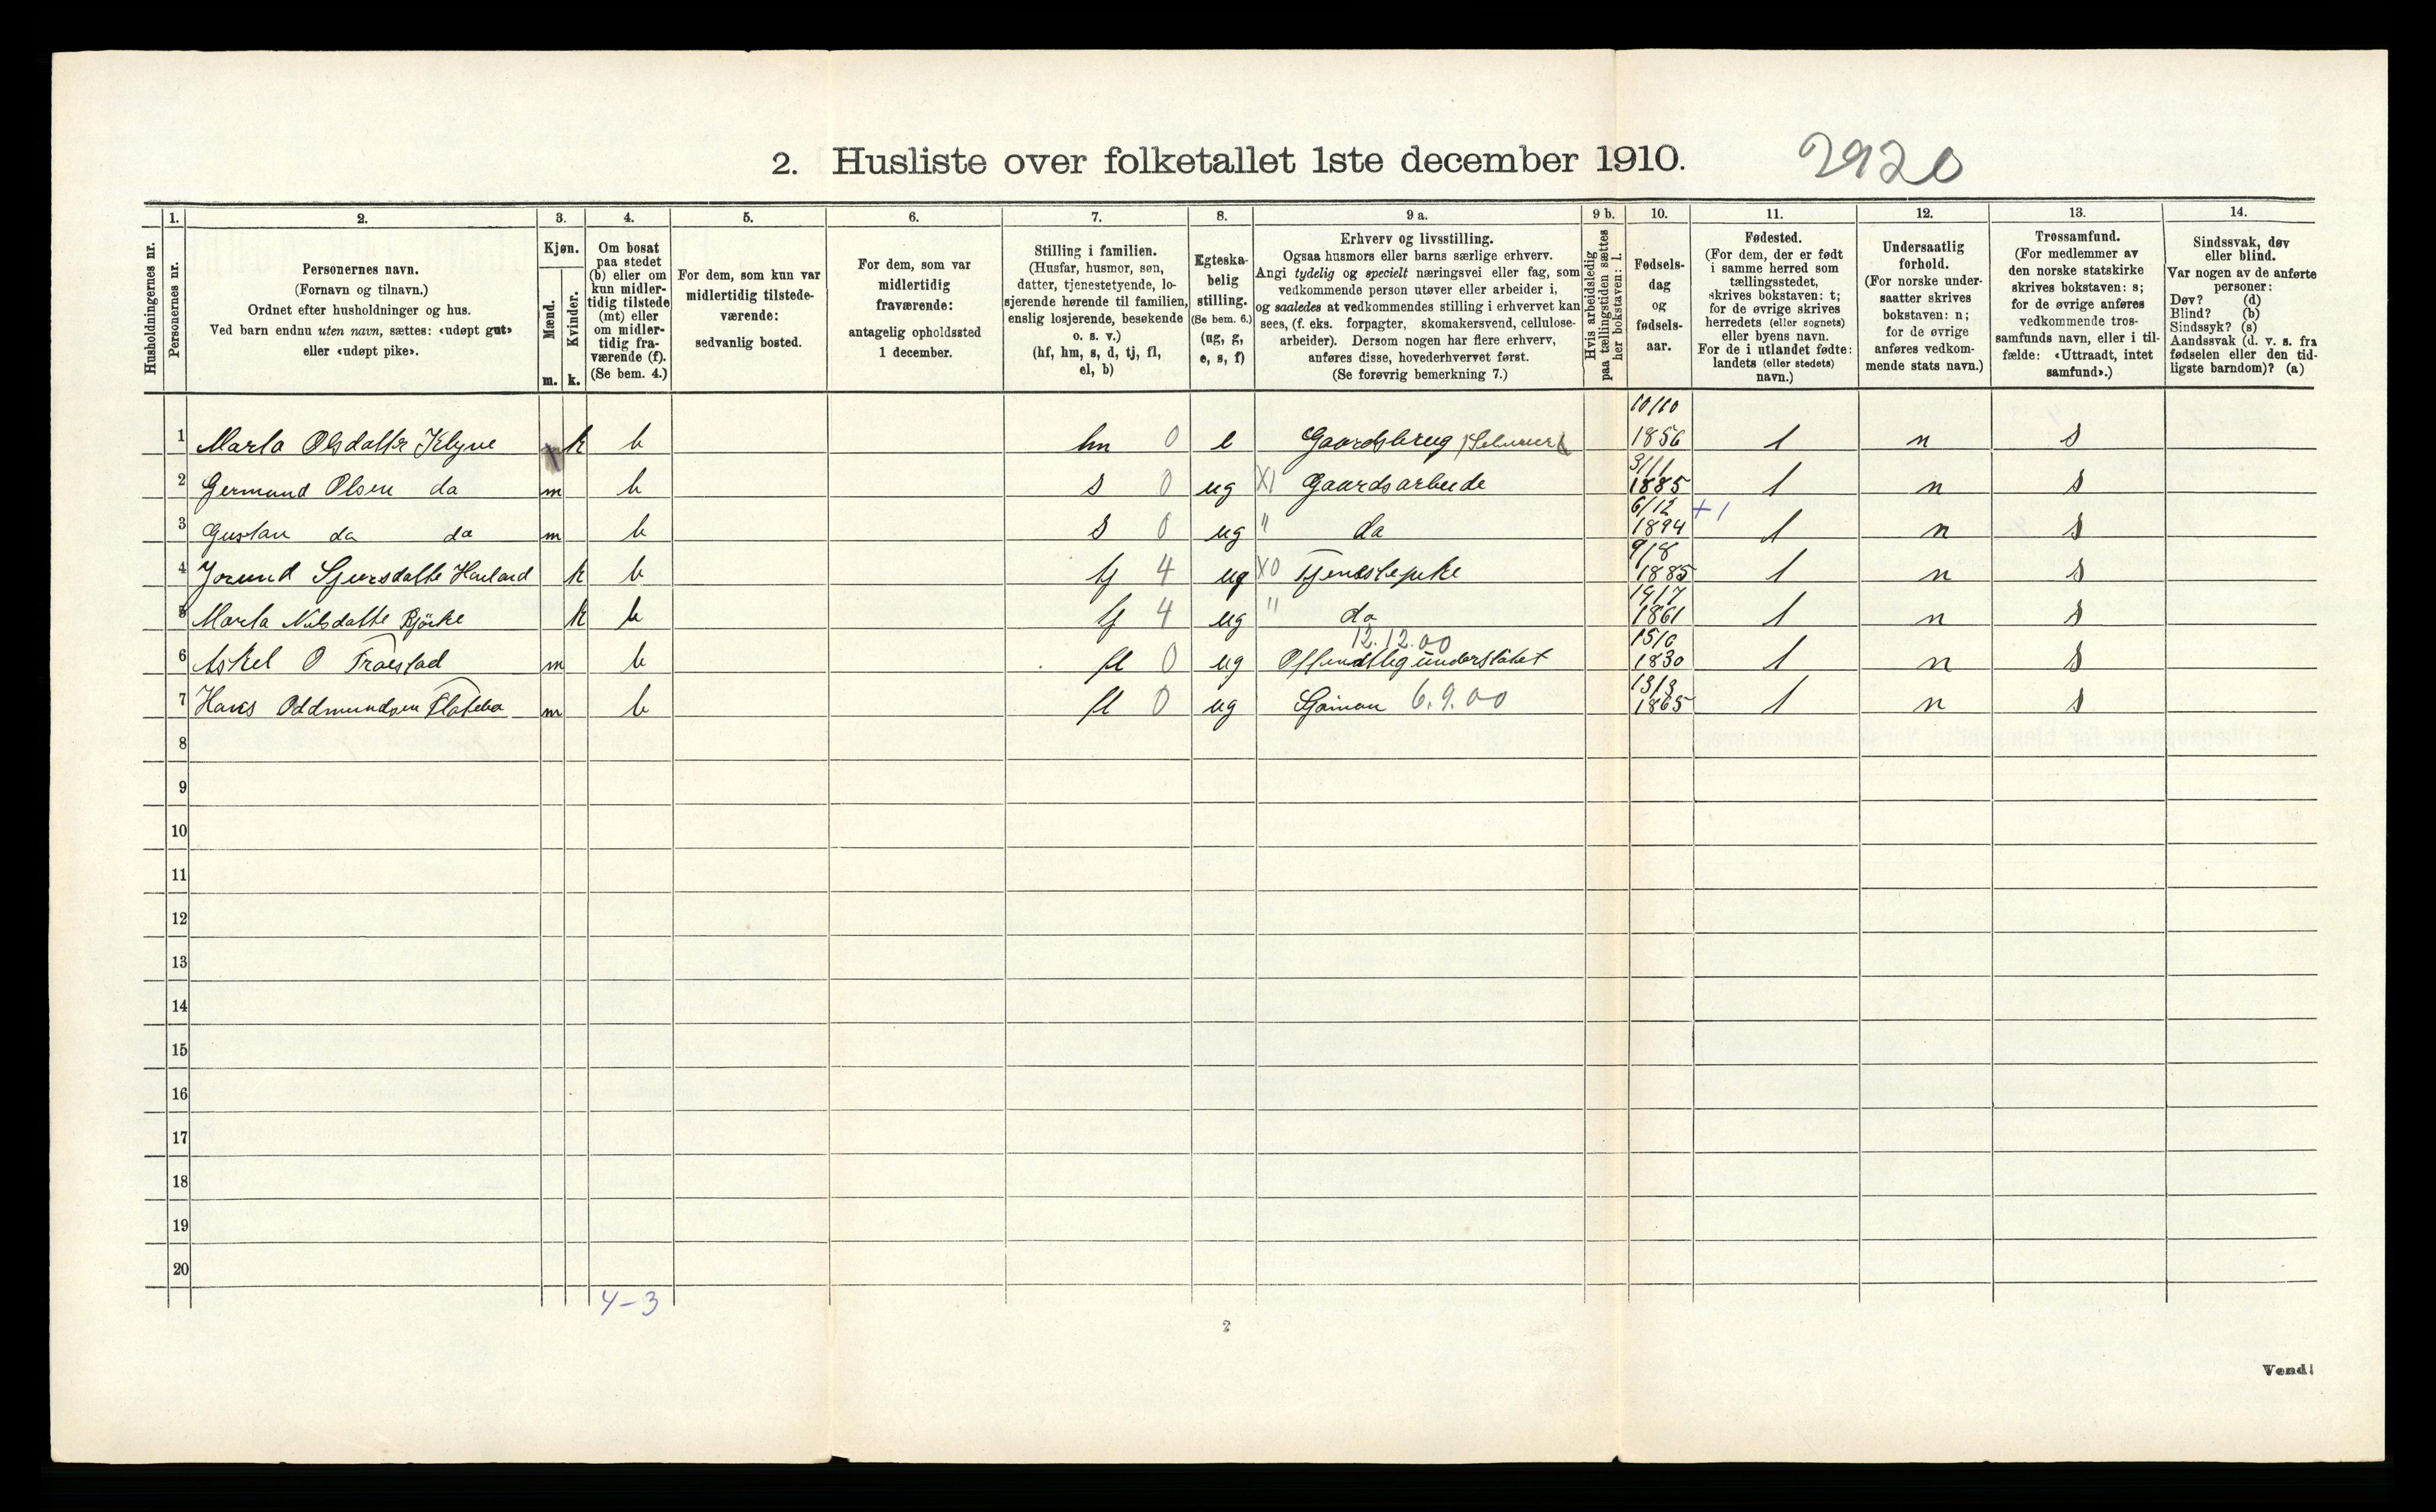 2. Husliste over folketallet 1ste december 1910. 2920
1. 2. 3. 4. 5. 6. 7. 8. 9 a. 9 b. 10. 11. 12. 13. 14.
Husholdningernes nr.
Personernes nr.
Personernes navn.
(Fornavn og tilnavn.)
Ordnet efter husholdninger og hus.
Ved barn endnu uten navn, sættes: «udøpt gut»
eller «udøpt pike».
Kjøn.
Mænd.
Kvinder.
m. k.
Om bosat
paa stedet
(b) eller om
kun midler-
tidig tilstede
(mt) eller
om midler-
tidig fra-
værende (f).
(Se bem. 4.)
For dem, som kun var
midlertidig tilstede-
værende:
sedvanlig bosted.
For dem, som var
midlertidig
fraværende:
antagelig opholdssted
1 december.
Stilling i familien.
(Husfar, husmor, søn,
datter, tjenestetyende, lo-
sjerende hørende til familien,
enslig losjerende, besøkende
o. s. v.)
(hf, hm, s, d, tj, fl,
el, b)
Egteska-
belig
stilling.
(Se bem. 6.)
(ug, g,
e, s, f)
Erhverv og livsstilling.
Ogsaa husmors eller barns særlige erhverv.
Angi tydelig og specielt næringsvei eller fag, som
vedkommende person utøver eller arbeider i,
og saaledes at vedkommendes stilling i erhvervet kan
sees, (f. eks. forpagter, skomakersvend, cellulose-
arbeider). Dersom nogen har flere erhverv,
anføres disse, hovederhvervet først.
(Se forøvrig bemerkning 7.)
Hvis arbeidsledig
paa tællingstiden sættes
her bokstaven: l.
Fødsels-
dag
og
fødsels-
aar.
Fødested.
(For dem, der er født
i samme herred som
tællingsstedet,
skrives bokstaven: t;
for de øvrige skrives
herredets (eller sognets)
eller byens navn.
For de i utlandet fødte:
landets (eller stedets)
navn.)
Undersaatlig
forhold.
(For norske under-
saatter skrives
bokstaven: n;
for de øvrige
anføres vedkom-
mende stats navn.)
Trossamfund.
(For medlemmer av
den norske statskirke
skrives bokstaven: s;
for de øvrige anføres
vedkommende tros-
samfunds navn, eller i til-
fælde: «Uttraadt, intet
samfund».)
Sindssvak, døv
eller blind.
Var nogen av de anførte
personer:
Døv? (d)
Blind? (b)
Sindssyk? (s)
Aandssvak (d. v. s. fra
fødselen eller den tid-
ligste barndom)? (a)
1 Marta Olsdatter Klyve k b hm 0 e Gaardsbrug 10/10 1856 t n s
2 Germund Olsen da m b s 0 ug X1 Gaardsarbeide 3/11 1885 t n s
3 Gustav da da m b s 0 ug " da 6/12 1894 +1 t n s
4 Jorund Sjursdatte Haaland k b tj 4 ug X0 Tjenestepike 9/8 1885 t n s
5 Marta Nilsdatte Björke k b tj 4 ug " da 19/7 1861 t n s
6 Askel O Traestad m b fl 0 ug 12.12.00 Offentlig understötet 15/6 1830 t n s
7 Hans Oddmundsen Flatebø m b fl 0 ug Sjöman 6.9.00 13/3 1865 t n s
8
9
10
11
12
13
14
15
16
17
18
19
20
4-3
2
Vend!